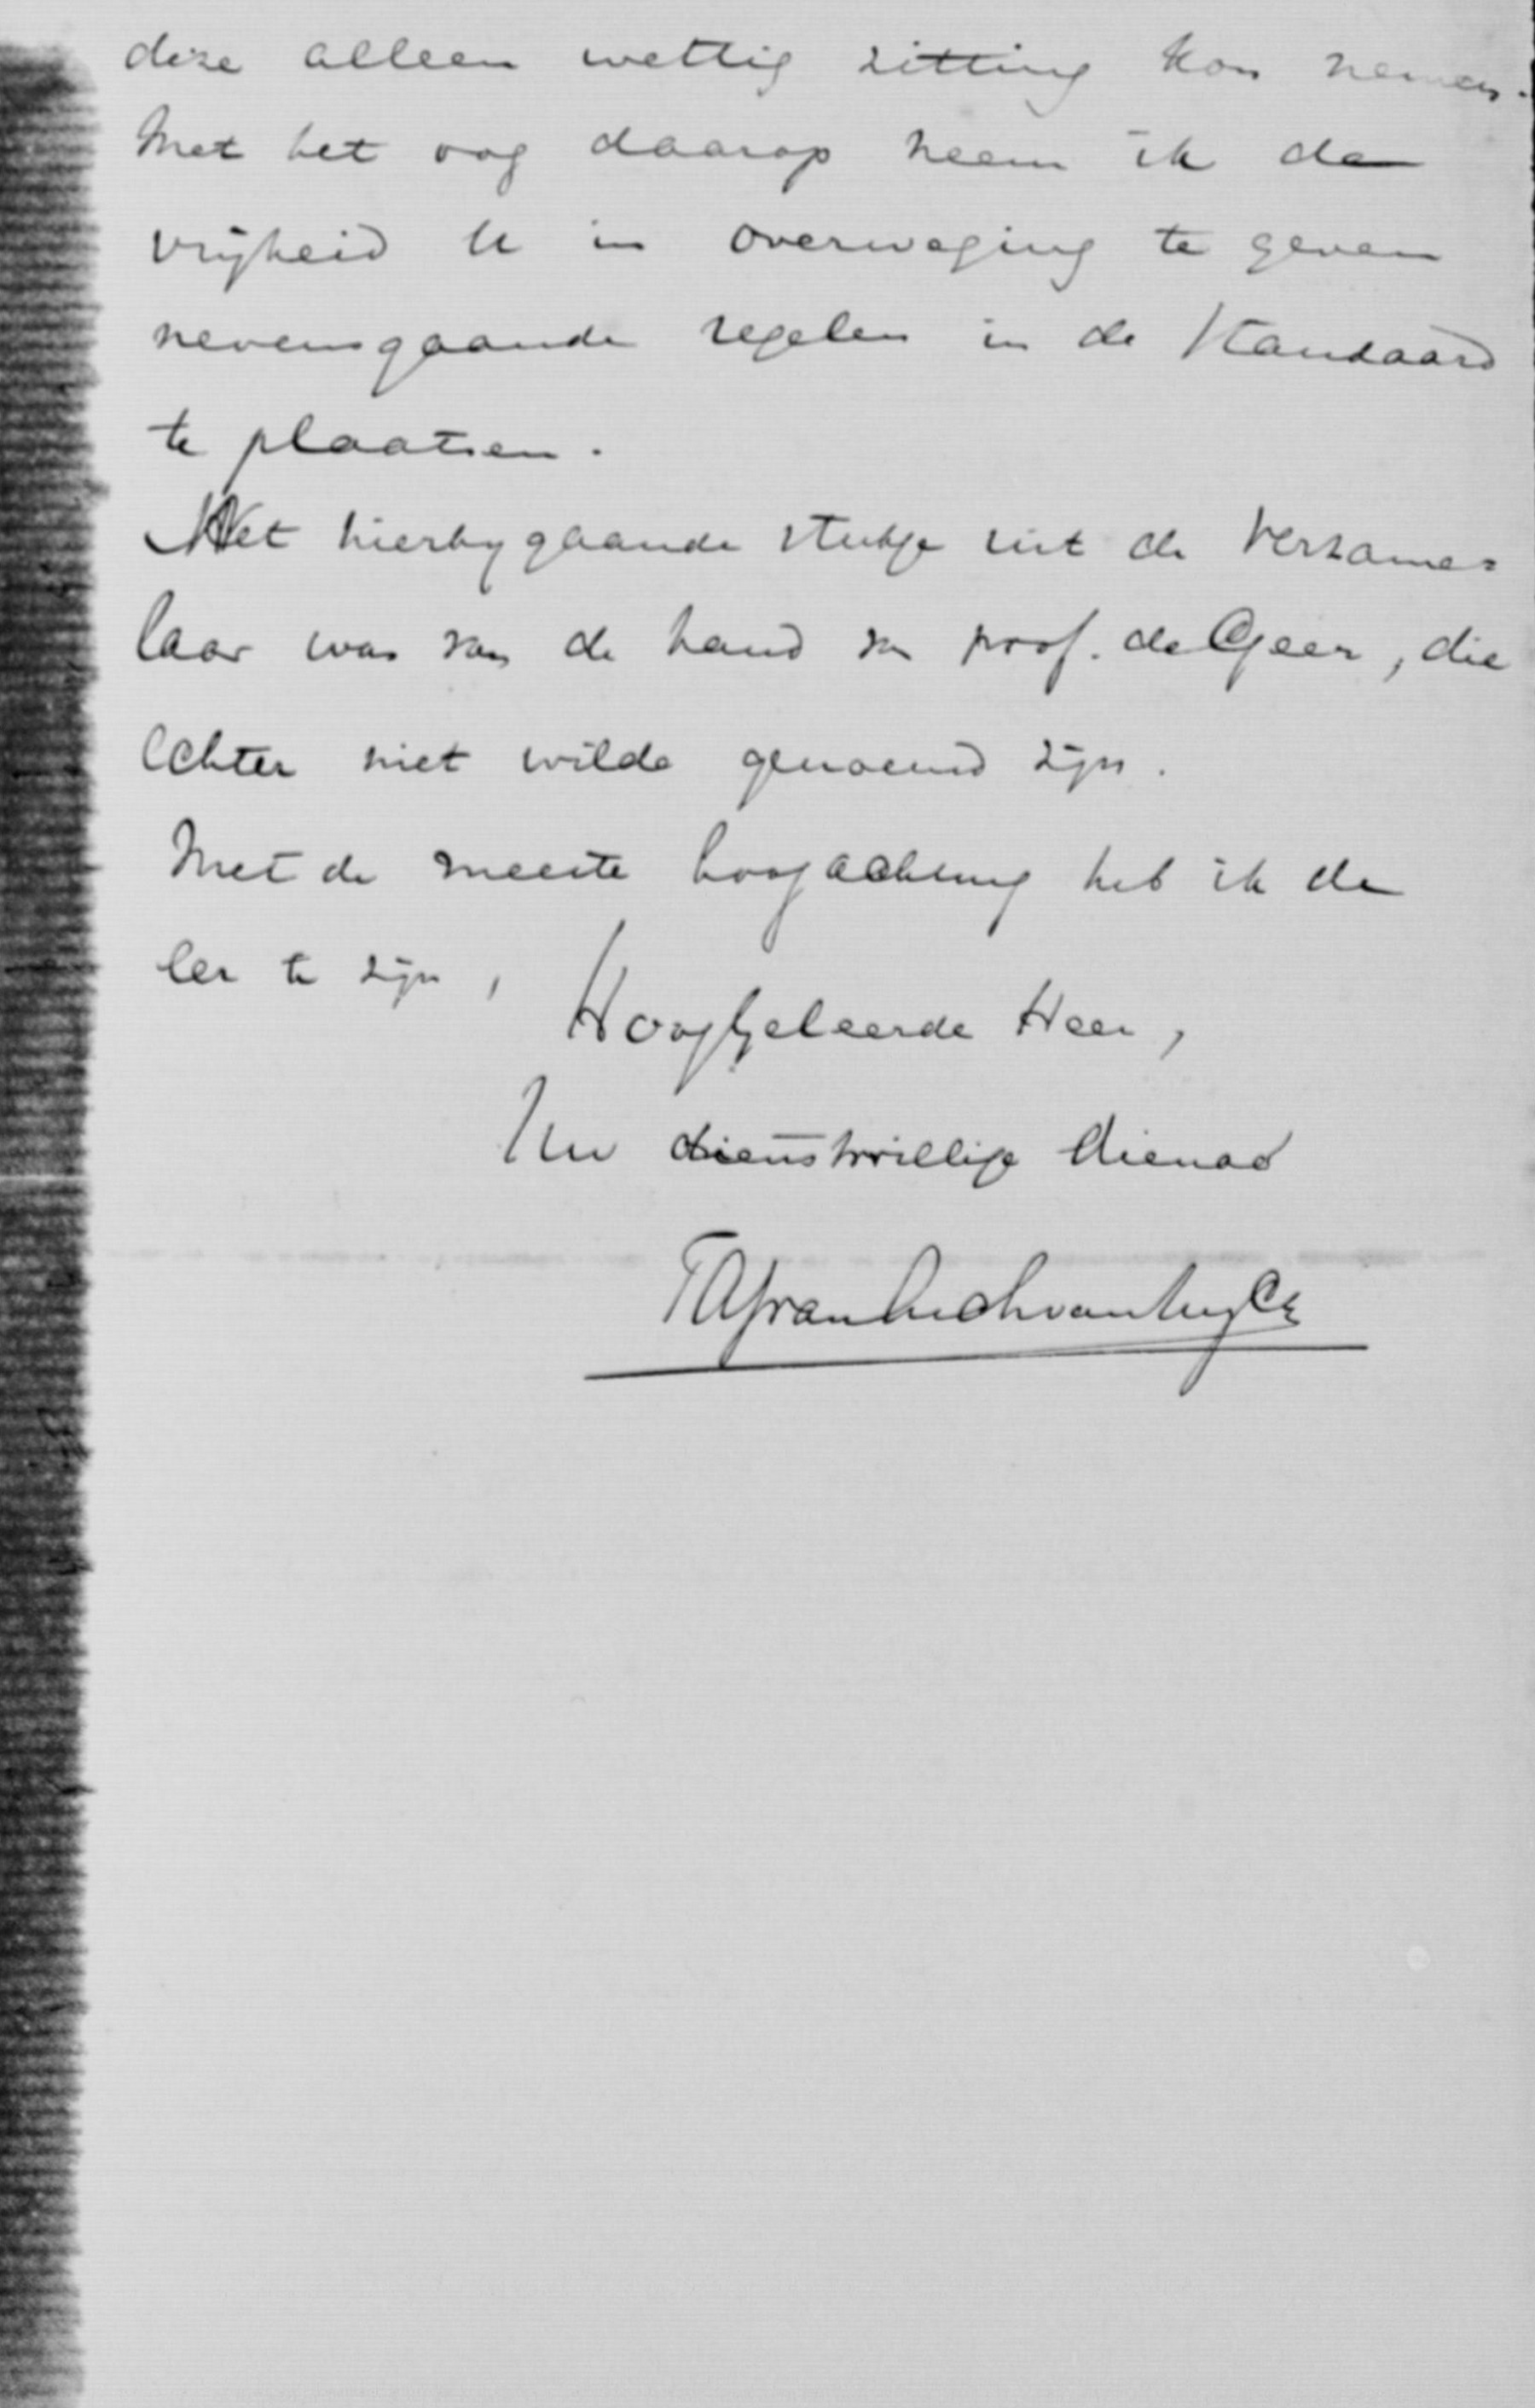 deze alleen wettig zitting kon nemen.
Met het oog daarop neem ik de
vrijheid U in overweging te geven
nevensgaande regelen in de Standaard
te plaatsen.
Het hierbygaande stukje uit de Verzame=
laar was van de hand van prof. de Geer, die
echter niet wilde genoemd zijn.
Met de meeste hoogachting heb ik de
eer te zijn,
HoogGeleerde Heer,
Uw dienstwillige dienaar